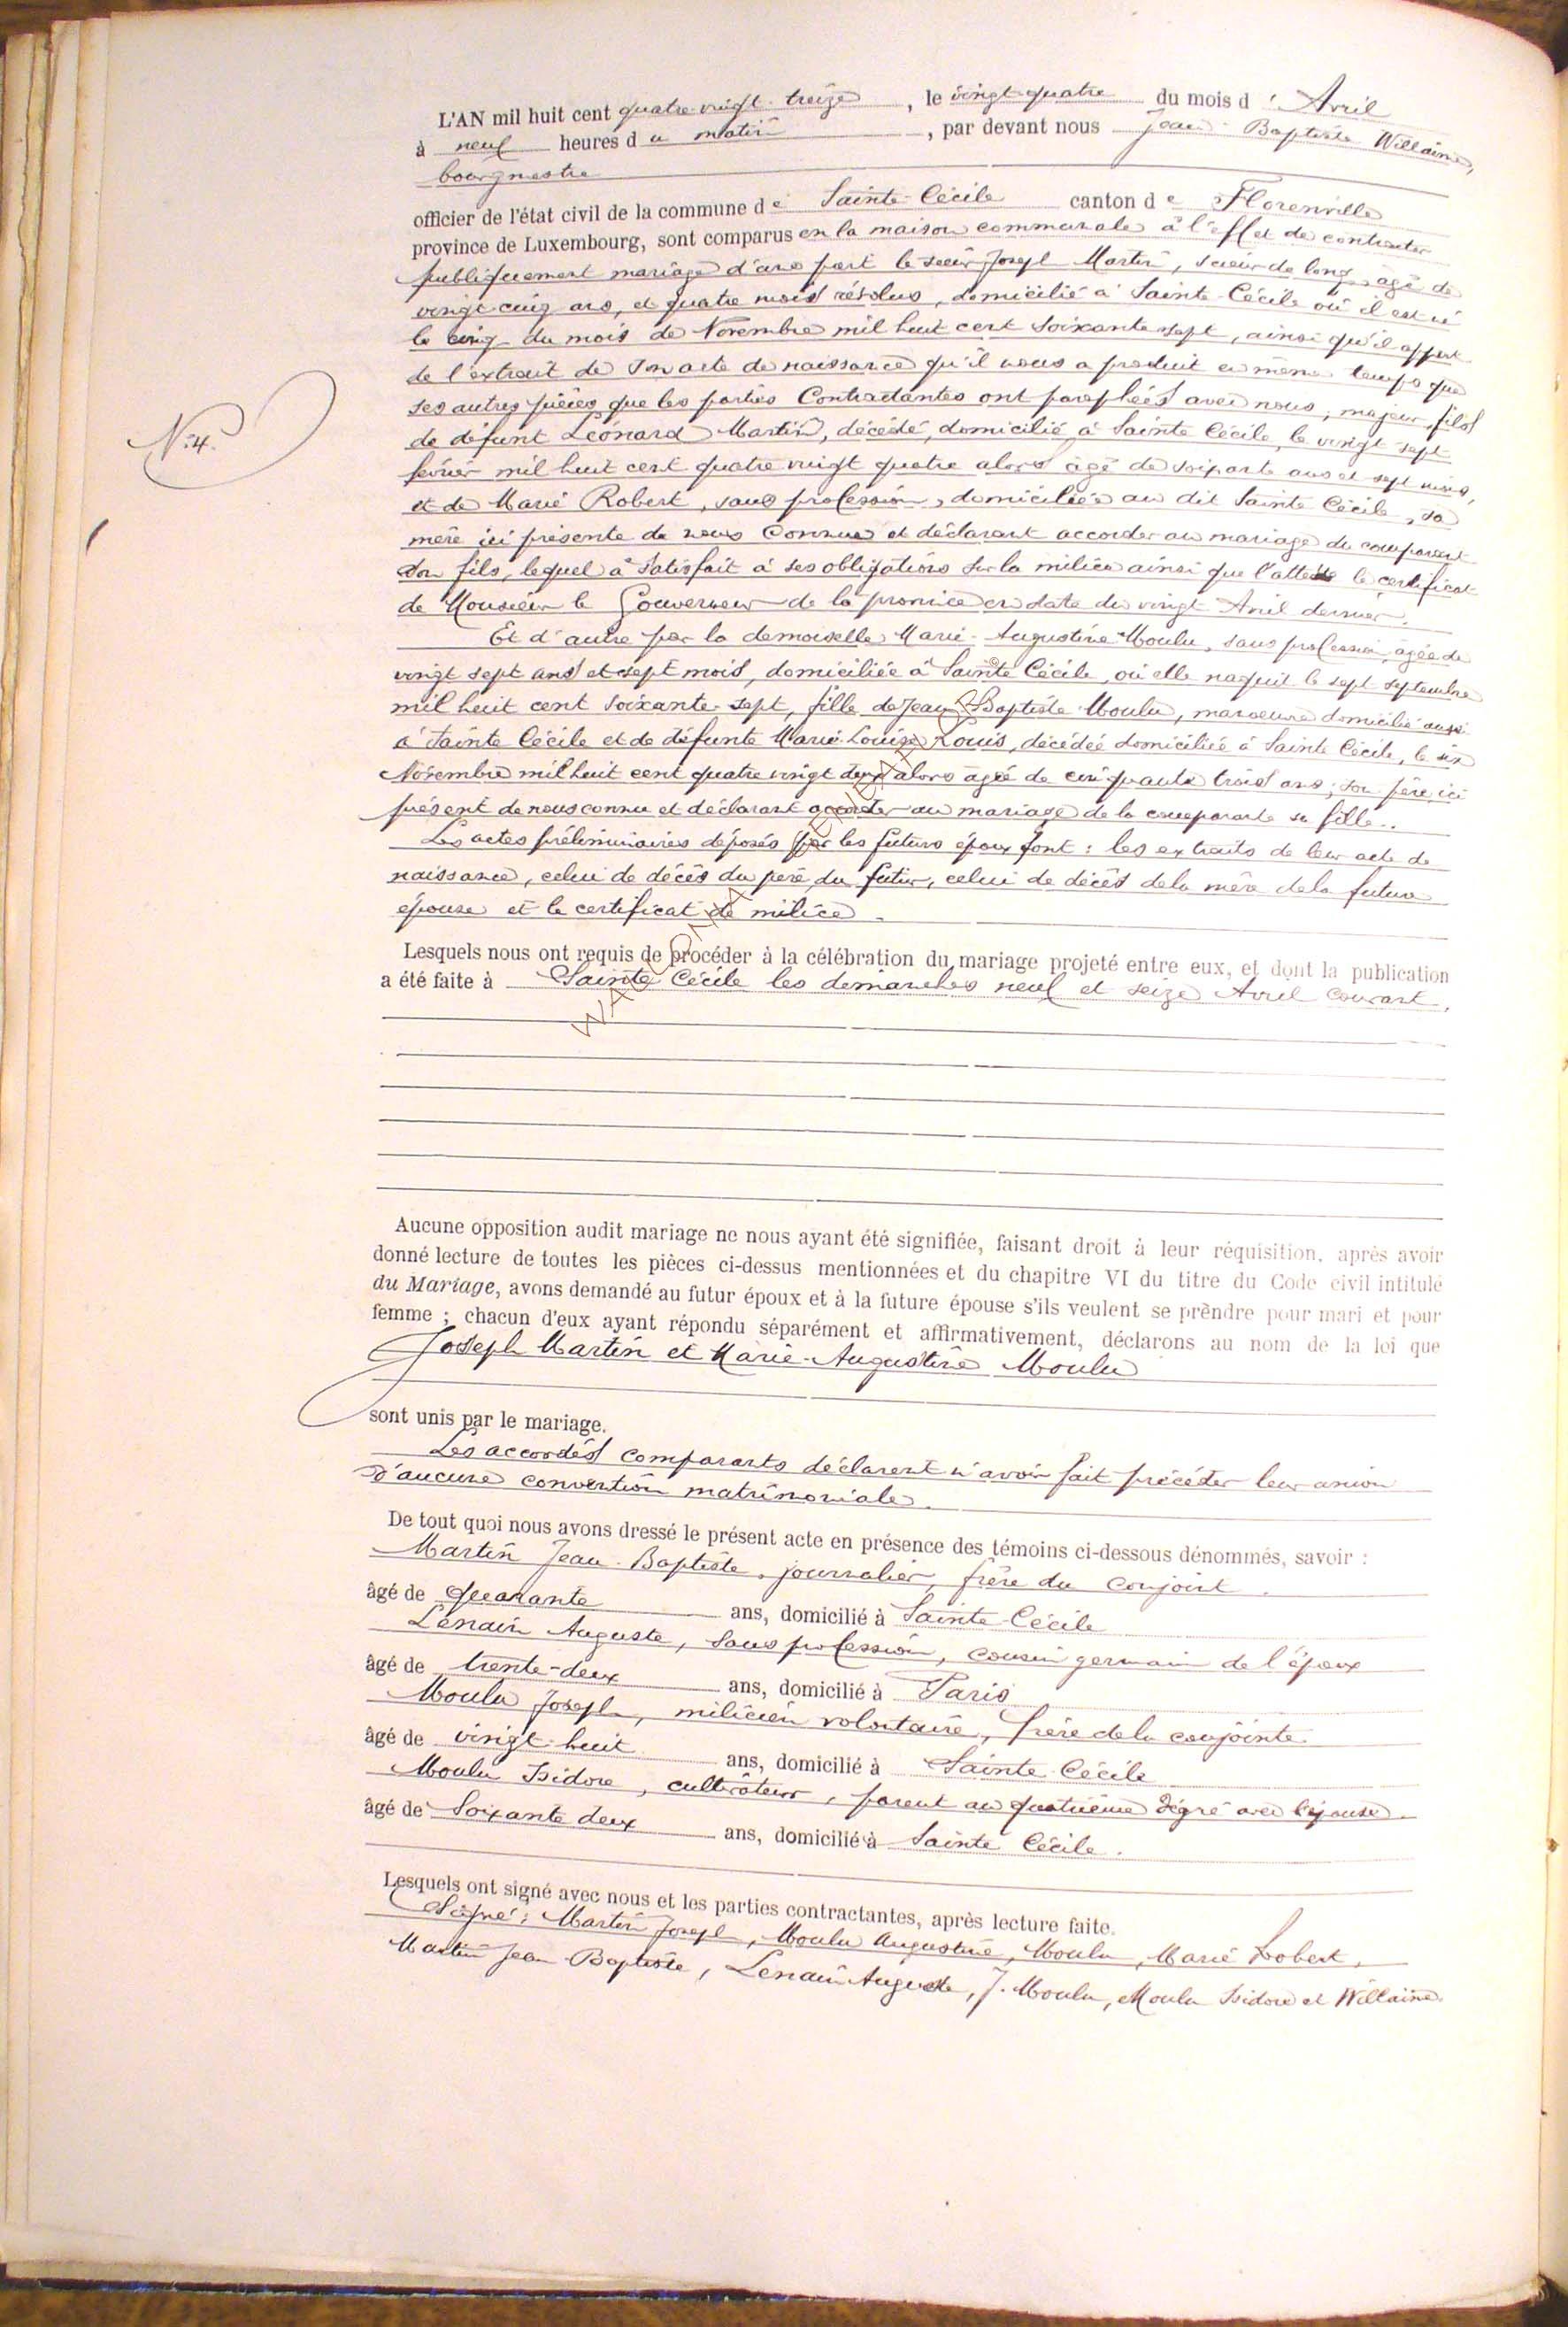 L'AN mil huit cent quatre-vingt-treize, le vingt-quatre du mois d'Avril
à neuf heures du matin, par devant nous Jean-Baptiste Willaime,
bourgmestre
officier de l'état civil de la commune de Sainte-Cécile canton de Florenville
province de Luxembourg, sont comparus en la maison communale à l'effet de contracter
publiquement mariage d'une part le sieur Joseph Martin, scieur de long, agé de
vingt cinq ans, et quatre mois résolus, domicilié à Sainte-Cécile où il est né
le cinq du mois de Novembre mil huit cent soixante sept, ainsi qu'il appert
de l'extrait de son acte de naissance qu'il nous a produit en même temps que
ses autres pièces que les parties Contractantes ont paraphées avec nous; majeur, fils
de défunt Léonard Martin, décédé, domicilié à Sainte Cécile, le vingt-sept
février mil huit cent quatre vingt quatre alors âgé de soixante ans et sept mois,
et de Marie Robert, sans profession, domiciliée au dit Sainte Cécile, sa
mère ici présente de nous Connue et déclarant accorder au mariage du comparant
son fils, lequel a satisfait à ses obligations sur la milice ainsi que l'atteste le certificat
de Monsieur le Gouverneur de la province en date du vingt Avril dernier.
Et d'autre par la demoiselle Marie-Augustine Moulu, sans profession, âgée de
vingt sept ans et sept mois, domiciliée à Sainte Cécile, où elle naquit le sept septembre
mil huit cent soixante-sept, fille de Jean-Baptiste Moulu, manoeuvre domicilié aussi
à Sainte Cécile et de défunte Marie-Louise Louis, décédée domiciliée à Sainte Cécile, le six
Novembre mil huit cent quatre vingt deux alors âgée de cinquante trois ans; son père, ici
présent de nous connu et déclarant accorder au mariage de la comparante sa fille.
Les actes préliminaires déposés par les futurs époux sont: les extraits de leur acte de
naissance, celui de décès du père du futur, celui de décès de la mère de la future
épouse et le certificat de milice.
Lesquels nous ont requis de procéder à la célébration du mariage projeté entre eux, et dont la publication
a été faite à Sainte Cécile les dimanches neuf et seize Avril courant.
Aucune opposition audit mariage ne nous ayant été signifiée, faisant droit à leur réquisition, après avoir
donné lecture de toutes les pièces ci-dessus mentionnées et du chapitre VI du titre du Code civil intitulé
du Mariage, avons demandé au futur époux et à la future épouse s'ils veulent se prendre pour mari et pour
femme ; chacun d'eux ayant répondu séparément et affirmativement, déclarons au nom de la loi que
Joseph Martin et Marie-Augustine Moulu
sont unis par le mariage.
Les accordés comparants déclarent n'avoir fait précéder leur union
d'aucune convention matrimoniale.
De tout quoi nous avons dressé le présent acte en présence des témoins ci-dessous dénommés, savoir :
Martin Jean-Baptiste, journalier, frère du conjoint.
âgé de quarante ans, domicilié à Sainte-Cécile
Lenain Auguste, sans profession, cousin germain de l'époux
âgé de trente-deux ans, domicilié à Paris
Moulu Joseph, milicien volontaire, frère de la conjointe
âgé de vingt-huit ans, domicilié à Sainte-Cécile
Moulu Isidore, cultivateur, parent au quatrième dégré avec l'épouse.
âgé de Soixante deux ans, domicilié à Sainte Cécile.
Lesquels ont signé avec nous et les parties contractantes, après lecture faite.
Signé: Martin Joseph, Moulu Augustine, Moulu, Marie Robert,
Martin Jean Baptiste, Lenain Auguste, J. Moulu, Moulu Isidore et Willaime.
N. 4.